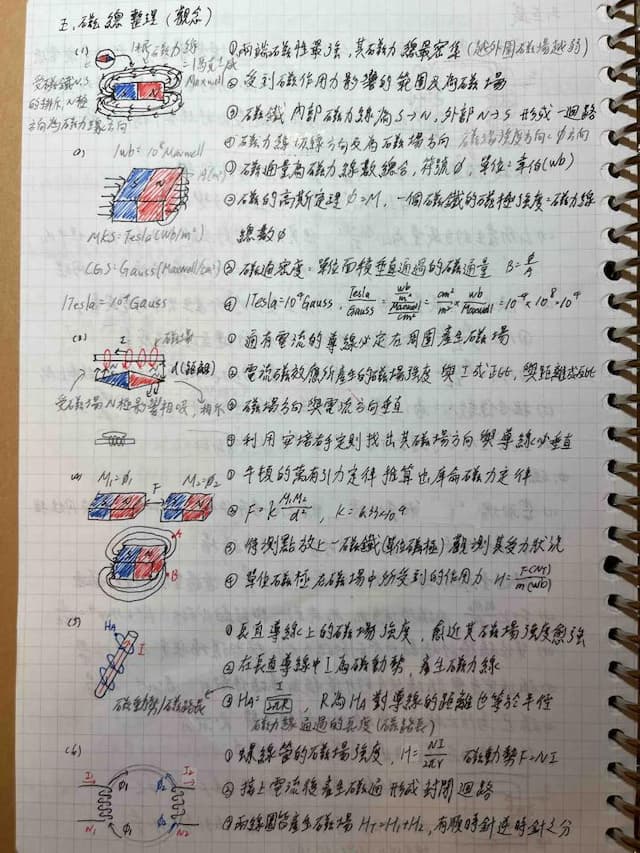 五、磁線整理(觀念)
(1)
1條磁力線
=1馬克士威
Maxwell
受磁鐵N.S
的排斥,N極
方向為磁力線方向
①兩端磁性最強,其磁力線最密集(越外圍磁場越弱)
②受到磁作用力影響的範圍及為磁場
③磁鐵內部磁力線為S→N,外部N→S形成一迴路
④磁力線切線方向及為磁場方向 磁場強度方向=φ方向
(2) 1wb=10⁸Maxwell
S N
MKS=Tesla(Wb/m²)
CGS=Gauss(Maxwell/cm²)
1Tesla=10⁴Gauss
①磁通量為磁力線數總合,符號φ,單位=韋伯(Wb)
②磁的高斯定理φ=M,一個磁鐵的磁極強度=磁力線
總數φ
③磁通密度=單位面積垂直通過的磁通量 B=φ/A
④1Tesla=10⁴Gauss
(3)
I
磁場
d(距離)
受磁場N極影響相吸,相斥
①通有電流的導線必定在周圍產生磁場
②電流磁效應所產生的磁場強度與I成正比,與距離成反比
③磁場方向與電流方向垂直
④利用安培右手定則找出其磁場方向與導線必垂直
(4) M₁=φ₁ M₂=φ₂
F
S N S N
A
B
①牛頓的萬有引力定律推算出庫侖磁力定律
②F=K M₁M₂/d², K=6.33×10⁴
③待測點放上一磁鐵(單位磁極)觀測其受力狀況
④單位磁極在磁場中所受到的作用力 H=F(NT)/m(wb)
(5)
HA
I
磁動勢/磁路長
①長直導線上的磁場強度,愈近其磁場強度愈強
②在長直導線中I為磁動勢,產生磁力線
③HA=I/2πR,R為HA對導線的距離也等於半徑
磁力線通過的長度(磁路長)
(6)
I₁ φ₁ φ₂ I₂
N₁ φ₁ N₂
①螺線管的磁場強度,H=NI/2πr 磁動勢F=NI
②接上電流後產生磁通形成封閉迴路
③兩線圈皆產生磁場HT=H₁+H₂,有順時針逆時針之分